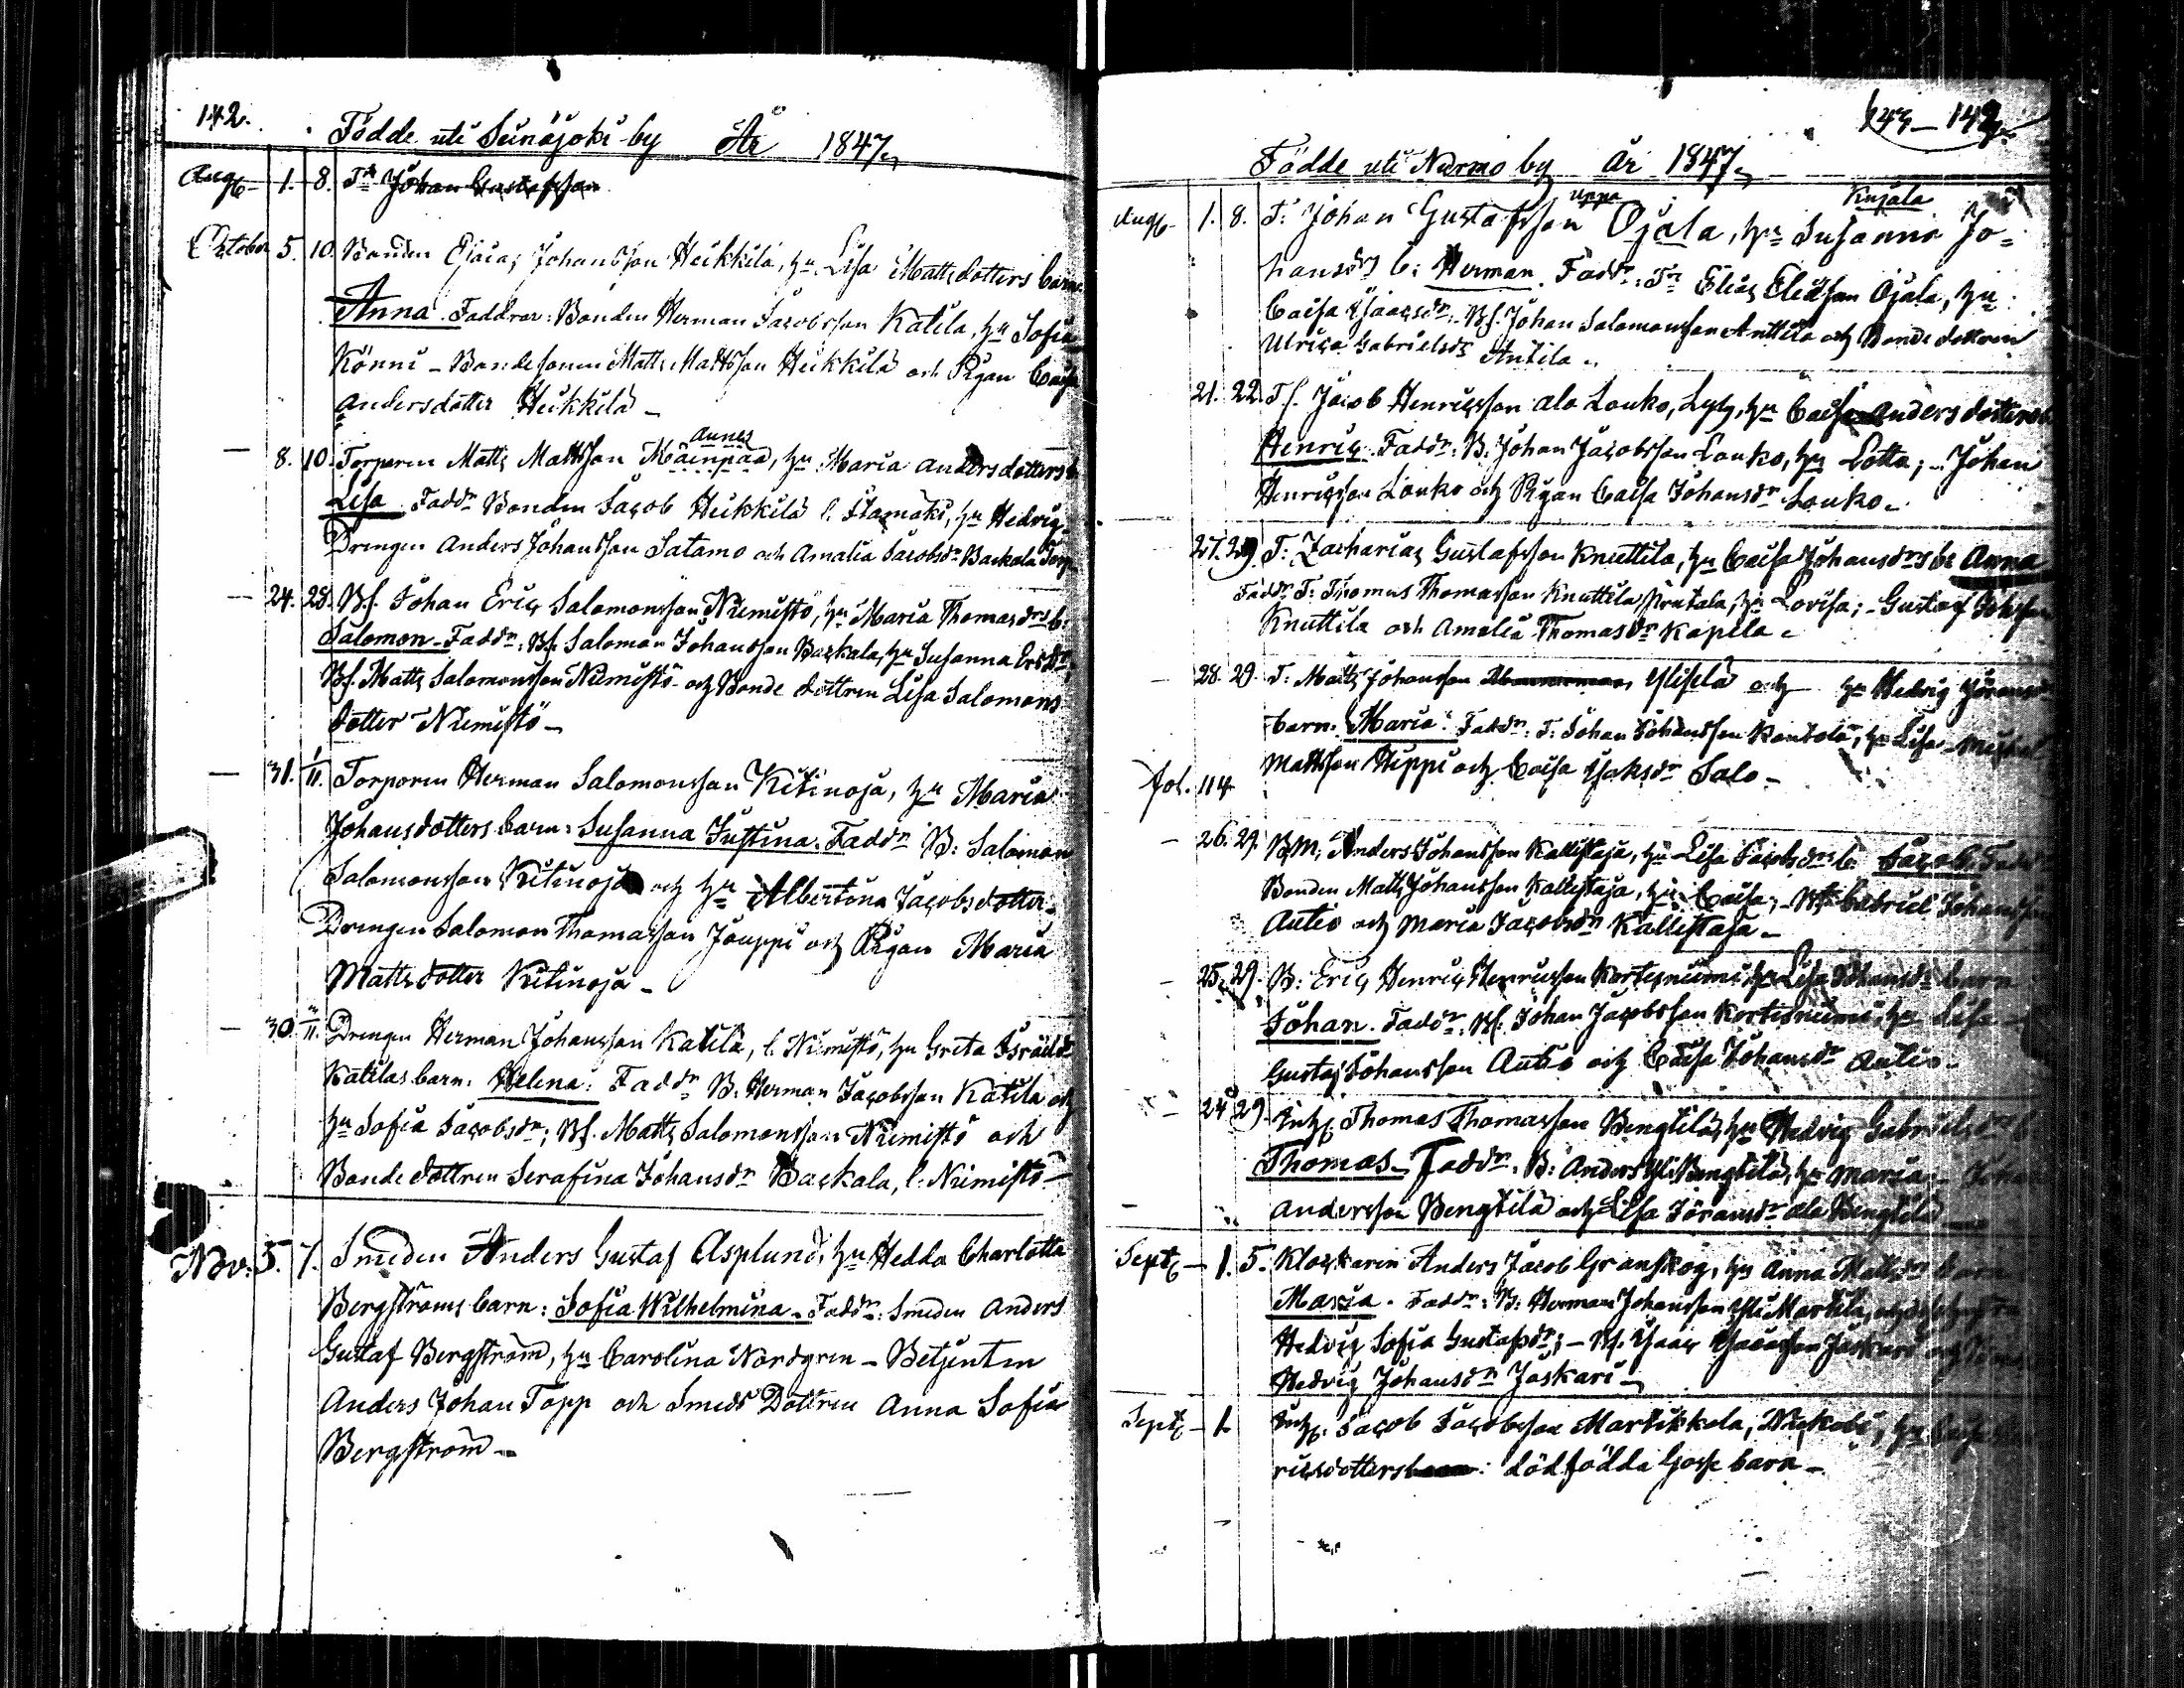 142.
Födde uti Seinäjoki by År 1847,
Aug. 1. 8. Tr. Johan Gustafsson
October 5. 10. Bonden Esaias Johansson Heikkilä, hu Lisa Mattsdotters barn
Anna. Faddrar: Bonden Herman Jacobsson Katila, hu Sofia
Könni – Bondesonen Matts Mattsson Heikkilä och Pigan Caisa
Andersdotter Heikkilä –
– 8. 10. Torparen Matts Mattsson Mäenpää, hu Maria Andersdotters
Lisa Faddr Bonden Jacob Heikkilä l. Ilamäki, hu Hedvig
Drengen Anders Johansson Satamo och Amalia Jacobsdr Backala Torp
– 24. 28. Bs. Johan Eric Salomonsson Niemistö, hu Maria Thomasdrs b.
Salomon – Faddr: Bs. Salomon Johansson Backala, hu Susanna Ersdr,
Bs. Matts Salomonsson Niemistö och Bonde dottren Lisa Salomons
dotter Niemistö –
– 31. 1/11. Torparen Herman Salomonsson Kitinoja, hu Maria
Johansdotters barn: Susanna Justina. Faddr B: Salomon
Salomonsson Kitinoja och hu Albertina Jacobsdotter –
Drengen Salomon Thomasson Jouppi och Pigan Maria
Mattsdotter Kitinoja –
– 30. 3/11. Drengen Herman Johansson Katila, l. Niemistö, hu Greta Israelsdr
Katilas barn: Helena: Faddr B. Herman Jacobsson Katila och
hu Sofia Jacobsdr; Bs. Matts Salomonsson Niemistö och
Bonde dottren Serafina Johansdr Backala, l. Niemistö –
Nov. 5. 7. Smeden Anders Gustaf Asplund, hu Hedda Charlotta
Bergströms barn: Sofia Wilhelmina – Faddr: Smeden Anders
Gustaf Bergström, hu Carolina Nordgren – Betjenten
Anders Johan Topp och Smeds Dottren Anna Sofia
Bergström –
143 – 142
Födde uti Nurmo by år 1847,
uppa Kujala
Aug. 1. 8. T: Johan Gustafsson Ojala, hu Susanna Jo=
hansdrs b: Herman. Faddr: Tr Elias Eliasson Ojala, hu
Caisa Isaacsdr – Bs. Johan Salomonsson Anttila och Bonde dottren
Ulrica Gabrielsdr Antila –
21. 22. Ts. Jacob Henricsson ala Louko, Lylz, hu Caisa Andersdotters b
Henric. Faddr: B. Johan Jacobsson Louko, hu Lotta; – Johan
Henricsson Louko och Pigan Caisa Johansdr Louko –
27. 29. T: Zacharias Gustafsson Knuttila, hu Caisa Johansdrs b: Anna
Faddr T: Thomas Thomasson Knuttila Pirttala, hu Lovisa; – Gustaf Johsson
Knuttila och Amalia Thomasdr Kapela –
– 28. 29. T: Matts Johansson Ylisela och hu Hedvig Göransdr
barn. Maria: Faddr: T: Johan Johansson Kontola, hu Lisa – Michel
Mattsson Hippi och Caisa Isaksdr Salo –
fol. 114
– 26. 29. BM. Anders Johansson Kallistaja, hu Lisa Jacobsdrs b. Jacob. Faddr
Bonden Matts Johansson Kallistaja, hu Caisa; – Bs Gabriel Johansson
Autio och Maria Jacobsdr Kallistaja –
– 25. 29. B: Eric Henric Henricsson Kortesniemi, hu Lisa Johansdr barn
Johan. Faddr: Bs. Johan Jacobsson Kortesniemi, hu Lisa –
Gustaf Johansson Autio och Caisa Johansdr Autio –
– 24. 29. Inh. Thomas Thomasson Bengtila, hu Hedvig Gabrielsdrs b
Thomas – Faddr: B: Anders Yli Bengtila, hu Maria – Johan
Andersson Bengtila och Lisa Göransdr ala Bengtila
Sept. – 1. 5. Klockaren Anders Jacob Granskog, hu Anna Mattsdr barn
Maria. Faddr: B: Herman Johansson Yli Martila, och
Hedvig Sofia Gustafsdr; – Bs. Isaac Isaacsson Jaskari och
Hedvig Johansdr Jaskari –
Sept. – 1. Inh. Jacob Jacobsson Martikkala, hu Caisa
ricsdotters barn: dödfödda Gosse barn –